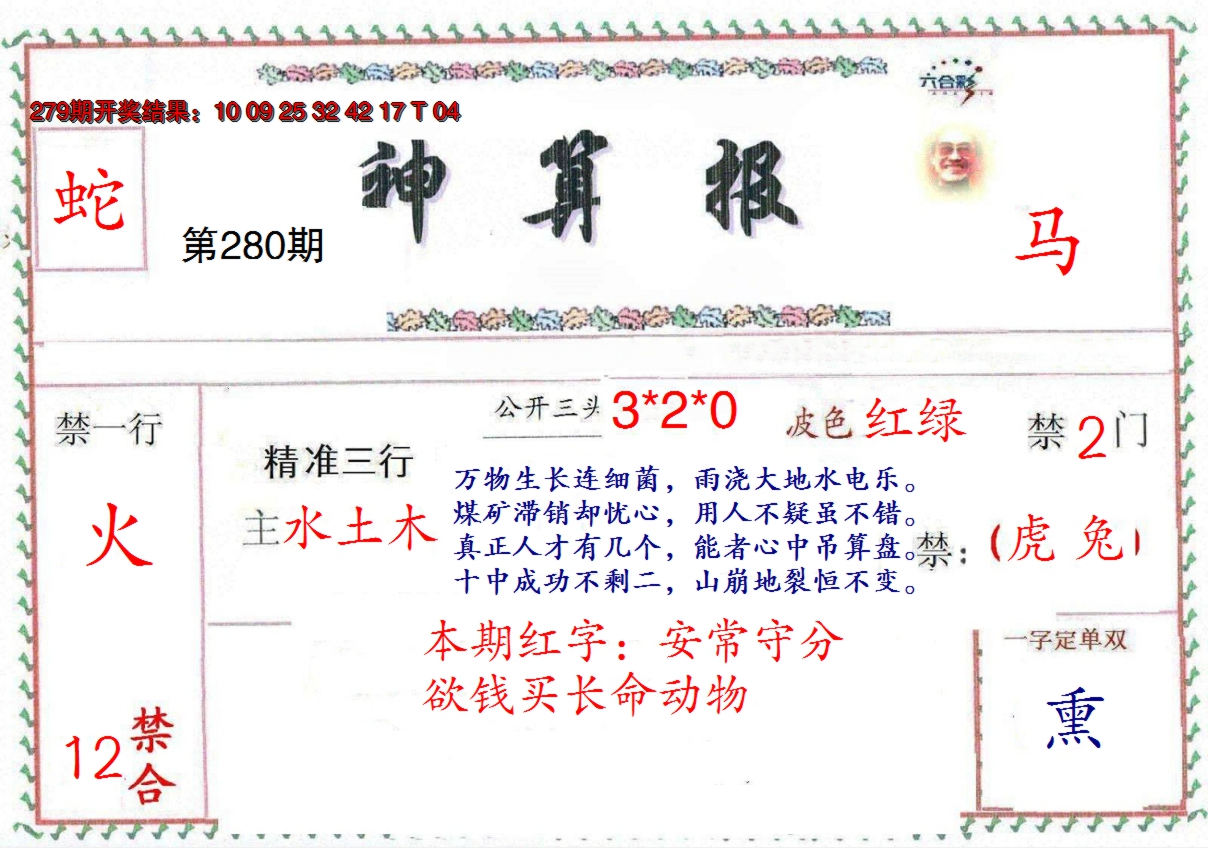 六合彩
279期开奖结果：10 09 25 32 42 17 T 04
神算报
蛇
第280期
马
禁一行
火
12禁合
精准三行
主水土木
公开三头 3*2*0
波色 红绿
禁2门
万物生长连细菌，雨浇大地水电乐。
煤矿滞销却忧心，用人不疑虽不错。
真正人才有几个，能者心中吊算盘。
十中成功不剩二，山崩地裂恒不变。
禁：（虎 兔）
本期红字：安常守分
欲钱买长命动物
一字定单双
熏